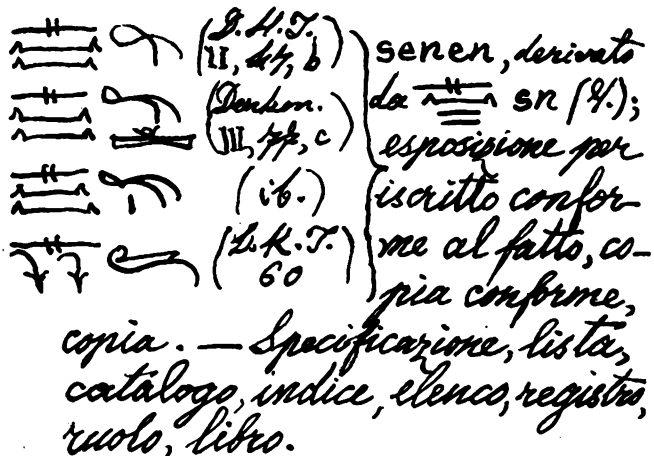 (D. H. I. II, 47, b)
(Denkm. III, 77, c)
(ib.)
(L. K. T. 60)
senen, derivato
da sn (V.);
esposizione per
iscritto confor-
me al fatto, co-
pia conforme,
copia. — Specificazione, lista,
catálogo, indice, elenco, registro,
ruolo, libro.